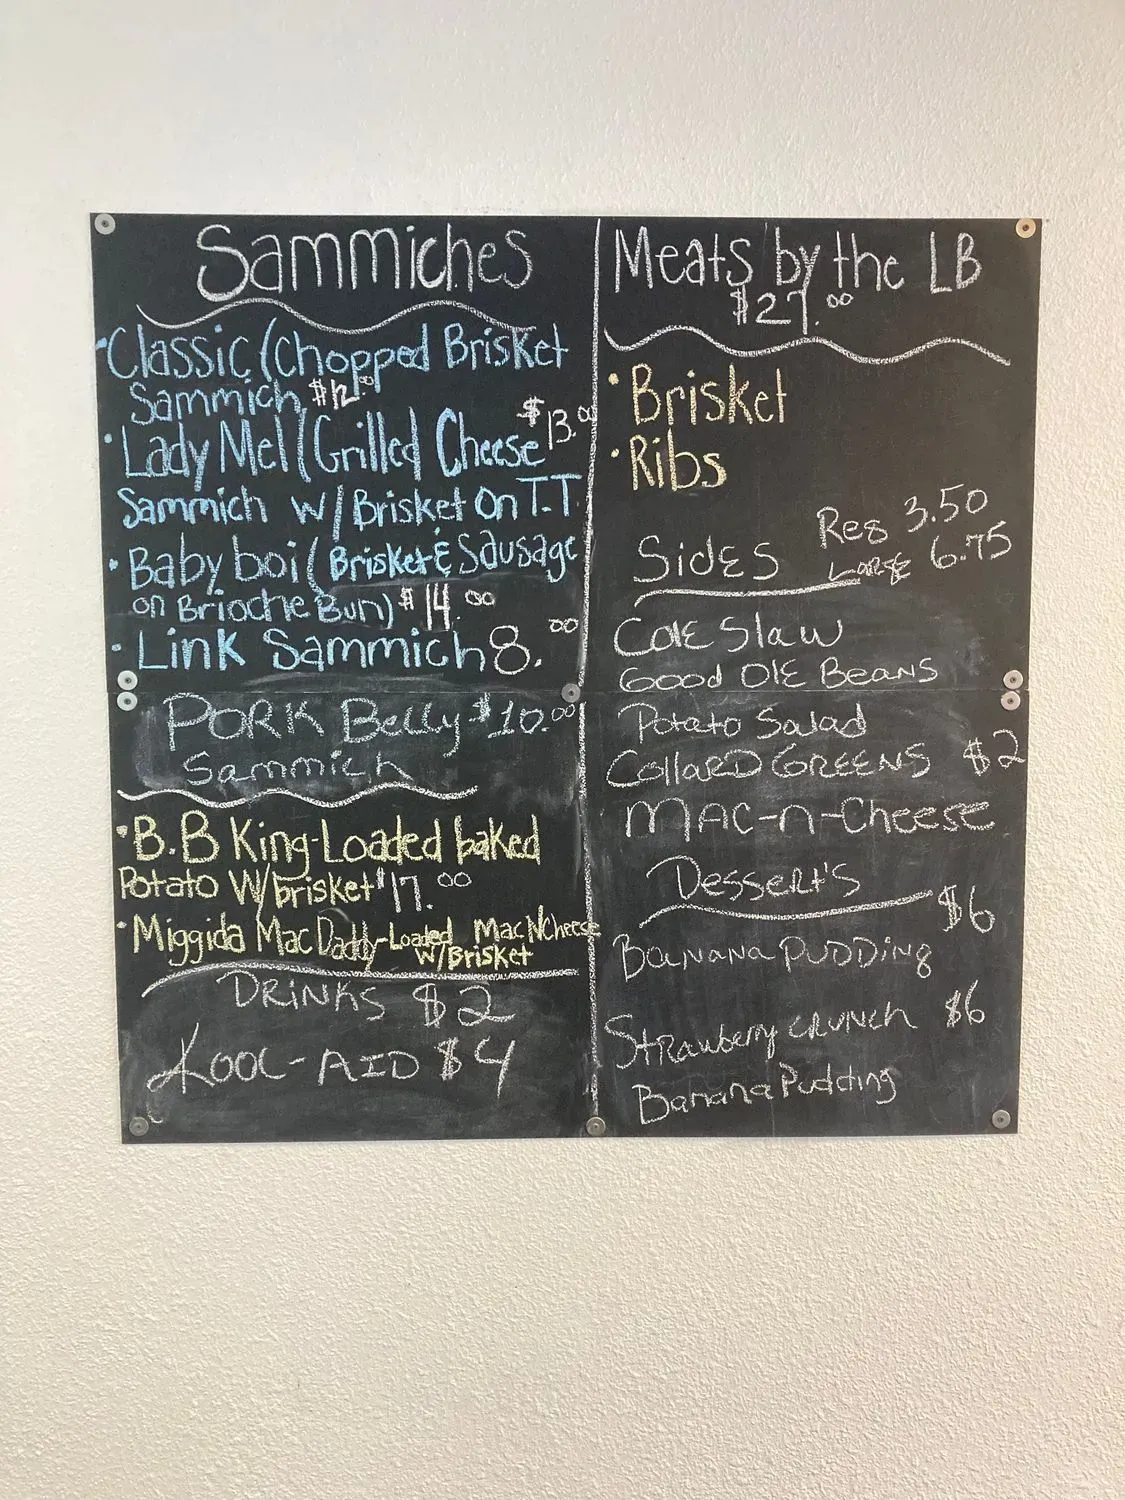 Sammiches
Classic (Chopped Brisket
Sammich $12.00
Lady Mel (Grilled Cheese $13.00
Sammich w/Brisket on T.T
Baby boi (Brisket & Sausage
on Brioche Bun) $14.00
Link Sammich 8.00
Pork Belly $10.00
Sammich
B.B King-Loaded baked
Potato w/brisket $17.00
Miggida Mac Daddy-Loaded Mac N Cheese
w/Brisket
Drinks $2
Kool-Aid $4
Meats by the LB
$27.00
Brisket
Ribs
Sides Reg 3.50
Large 6.75
Cole Slaw
Good Ole Beans
Potato Salad
Collard Greens $2
Mac-n-Cheese
Dessert's
$6
Banana Pudding
Strawberry Crunch $6
Banana Pudding